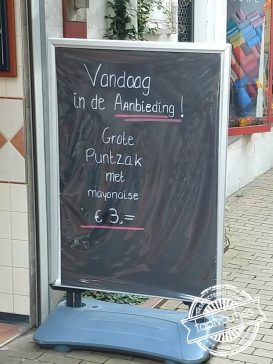 Vandaag
in de Aanbieding!
Grote
Puntzak
met
mayonaise
€ 3.=